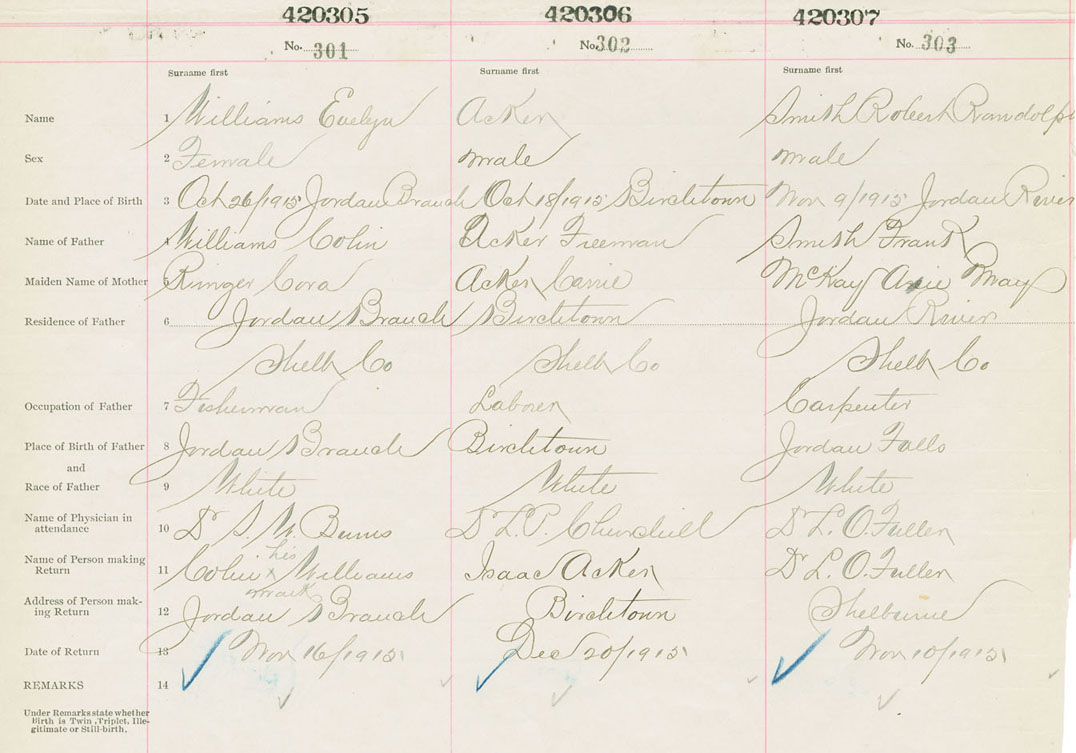 420305 420306 420307
No. 301 No. 302 No. 303
Surname first Surname first Surname first
Name 1 Williams Evelyn Acker Smith Robert Randolph
Sex 2 Female male male
Date and Place of Birth 3 Oct 26/1915 Jordan Branch Oct 18/1915 Birchtown Nov 9/1915 Jordan River
Name of Father 4 Williams Colin Acker Freeman Smith Frank
Maiden Name of Mother 5 Ringer Cora Acker Carrie McKay May
Residence of Father 6 Jordan Branch Birchtown Jordan River
Shelb Co Shelb Co Shelb Co
Occupation of Father 7 Fisherman Laborer Carpenter
Place of Birth of Father 8 Jordan Branch Birchtown Jordan Falls
and
Race of Father 9 White White White
Name of Physician in
attendance 10 Dr S. W. Burns Dr L. P. Churchill Dr L. O. Fuller
his
Name of Person making
Return 11 Colin x Williams Isaac Acker Dr L. O. Fuller
mark
Address of Person mak-
ing Return 12 Jordan Branch Birchtown Shelburne
Date of Return 13 Nov 16/1915 Dec 20/1915 Nov 10/1915
REMARKS 14
Under Remarks state whether
Birth is Twin, Triplet, Ille-
gitimate or Still-birth.